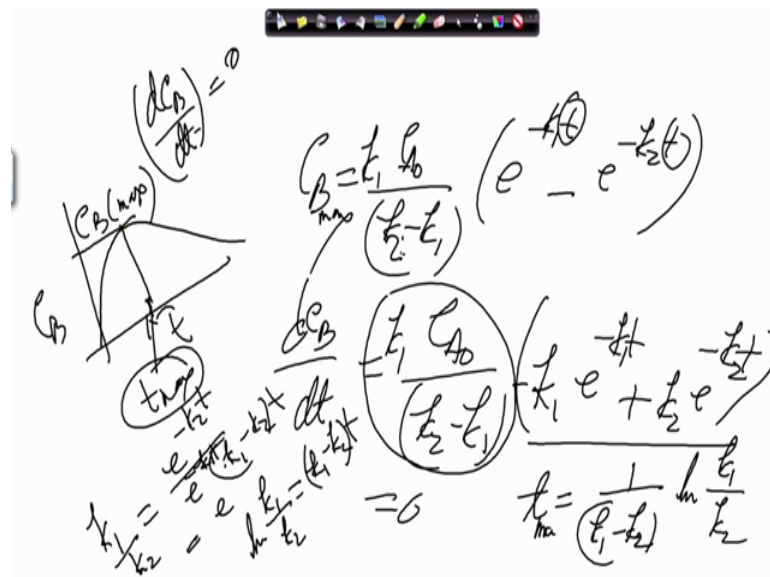 (dC_B/dt) = 0
C_B(max)
C_B
t
t_max
C_Bmax = k_1 C_A0/(k_2 - k_1) (e^{-k_1 t} - e^{-k_2 t})
dC_B/dt = k_1 C_A0/(k_2 - k_1) (-k_1 e^{-k_1 t} + k_2 e^{-k_2 t})
= 0
k_1/k_2 = e^{-k_2 t}/e^{-k_1 t}
= e^{(k_1 - k_2)t}
ln k_1/k_2 = (k_1 - k_2)t
t_max = 1/(k_1 - k_2) ln k_1/k_2